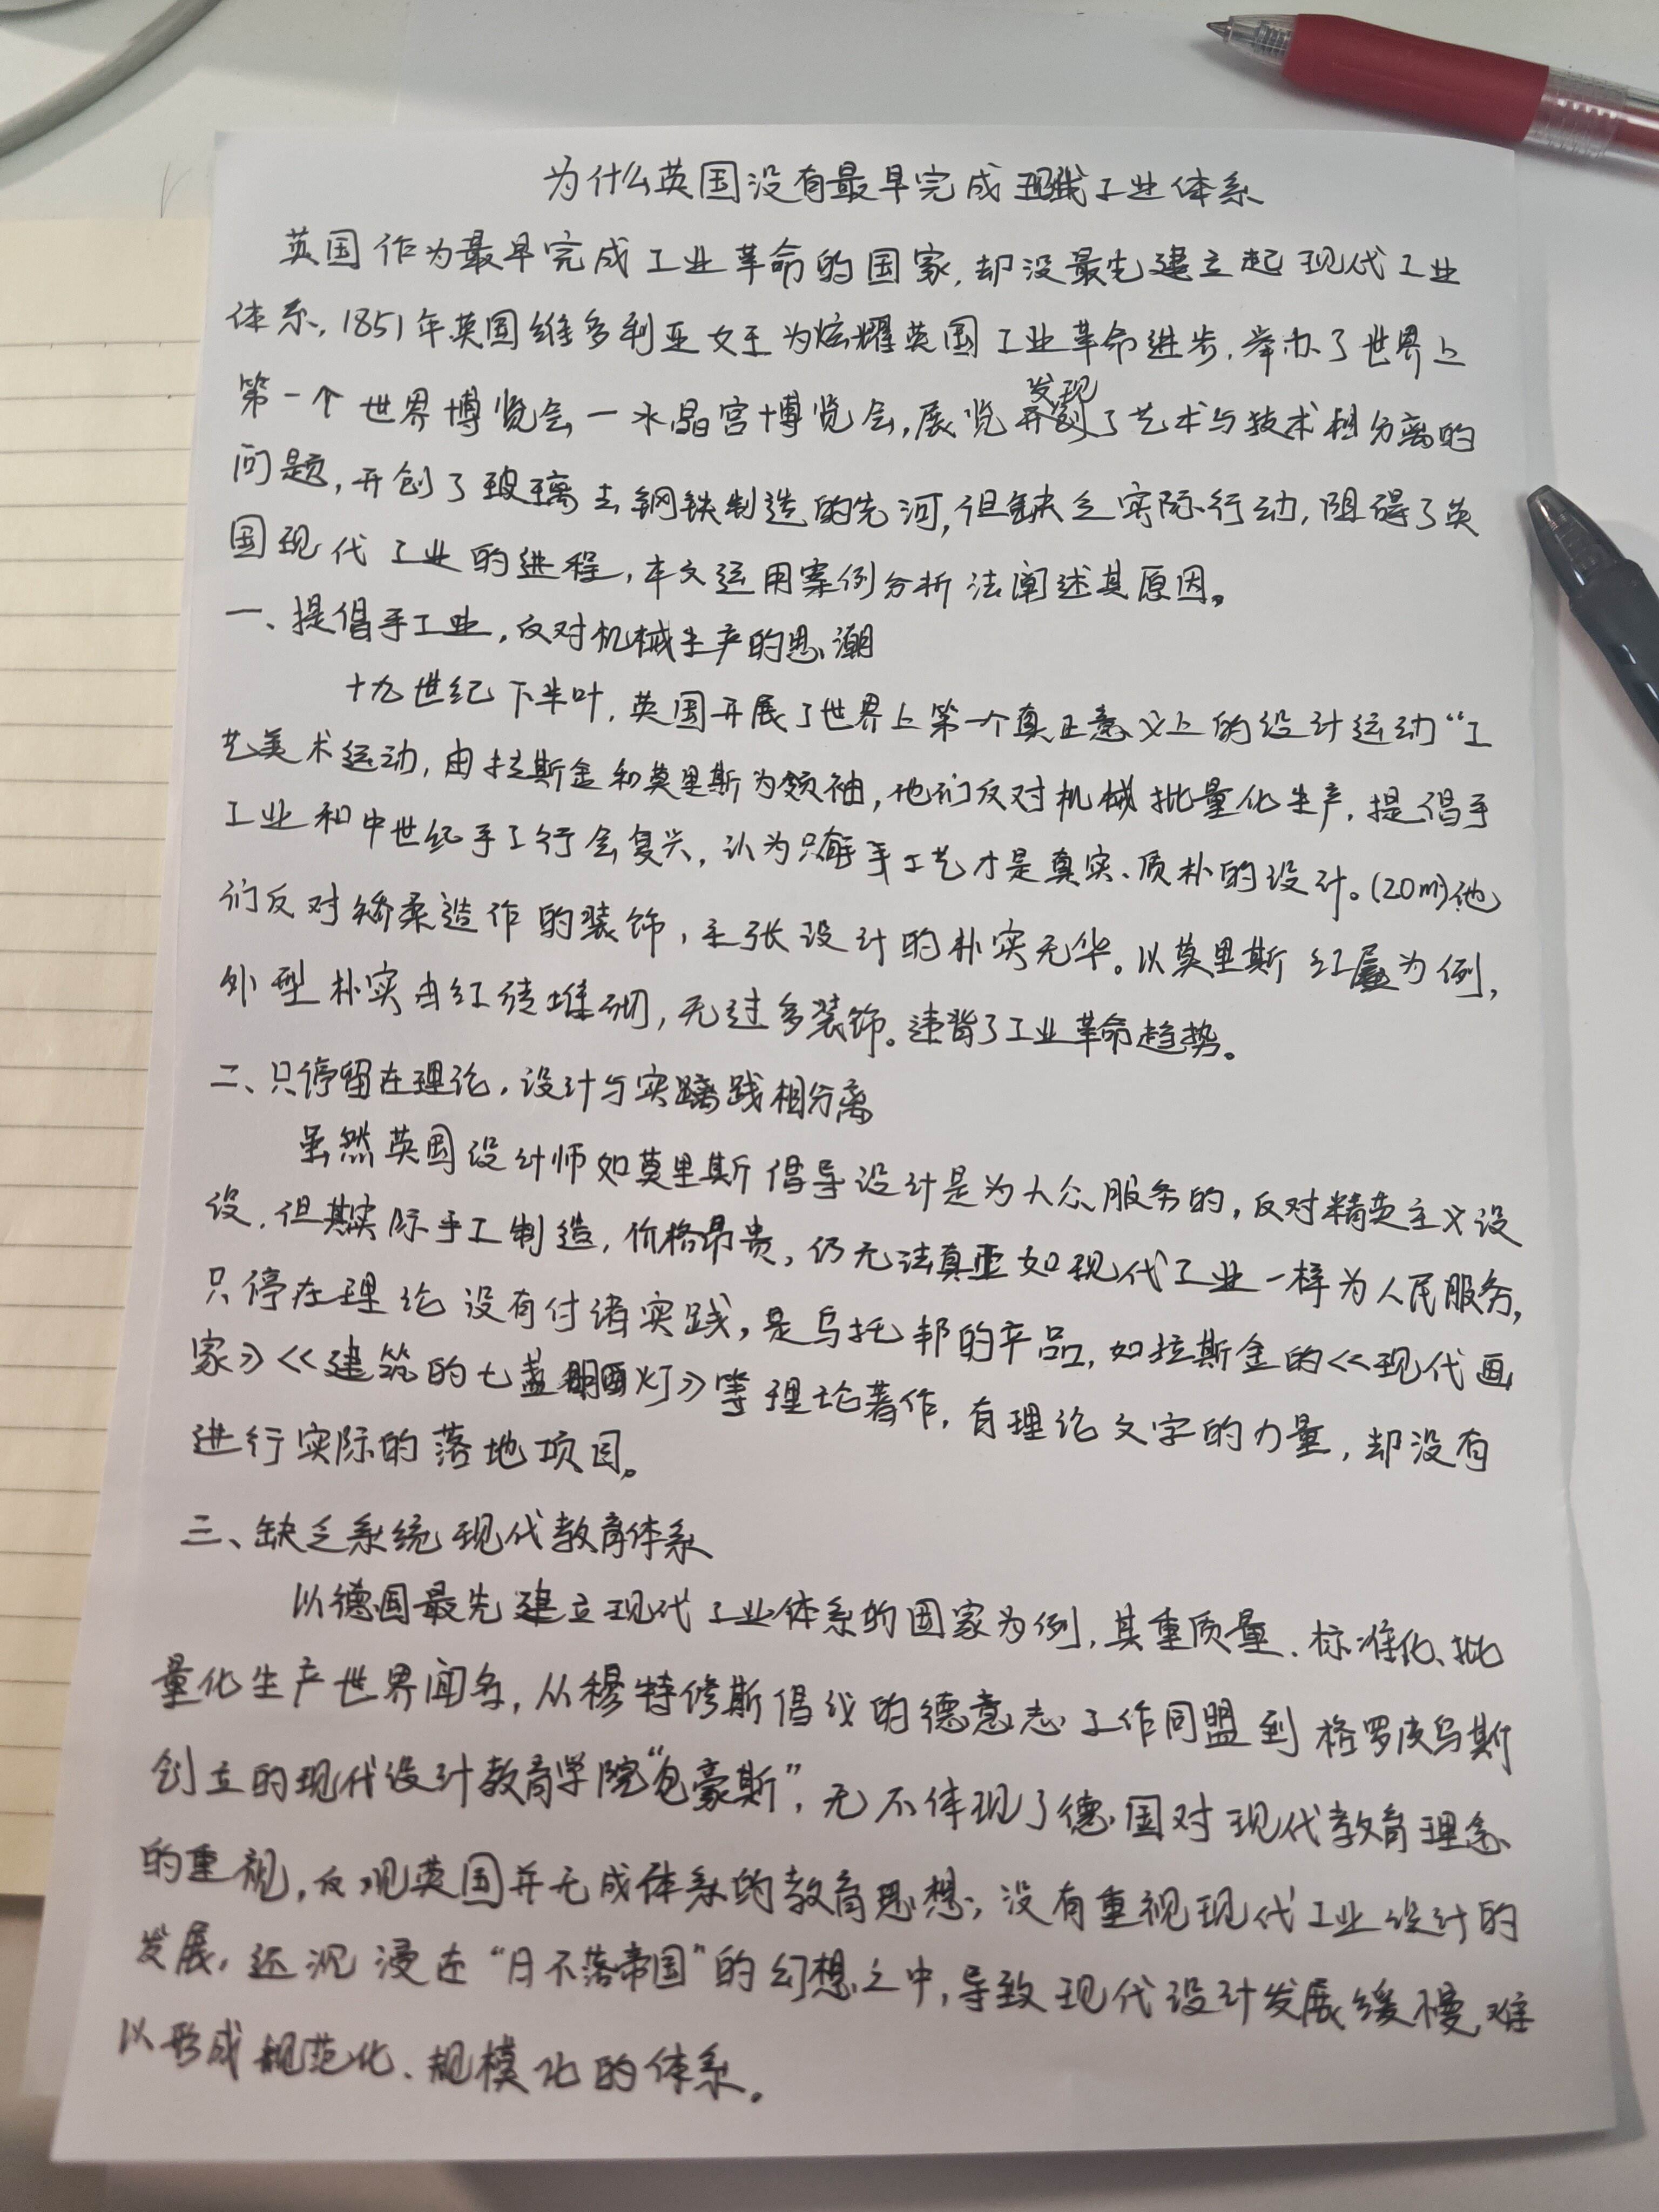 为什么英国没有最早完成现代工业体系
英国作为最早完成工业革命的国家,却没最先建立起现代工业
体系,1851年英国维多利亚女王为炫耀英国工业革命进步,举办了世界上
第一个世界博览会—水晶宫博览会,展览发现了艺术与技术相分离的
问题,开创了玻璃去钢铁制造的先河,但缺乏实际行动,阻碍了英
国现代工业的进程,本文运用案例分析法阐述其原因。
一、提倡手工业,反对机械生产的思潮
十九世纪下半叶,英国开展了世界上第一个真正意义上的设计运动“工
艺美术运动,由拉斯金和莫里斯为领袖,他们反对机械批量化生产,提倡手
工业和中世纪手工行会复兴,认为只有手工艺才是真实、质朴的设计。(20m)他
们反对矫柔造作的装饰,主张设计的朴实无华。以莫里斯红屋为例,
外型朴实由红砖堆砌,无过多装饰。违背了工业革命趋势。
二、只停留在理论,设计与实践相分离
虽然英国设计师如莫里斯倡导设计是为大众服务的,反对精英主义设
设,但其实际手工制造,价格昂贵,仍无法真正如现代工业一样为人民服务,
只停在理论没有付诸实践,是乌托邦的产品,如拉斯金的《现代画
家》《建筑的七盏明灯》等理论著作,有理论文字的力量,却没有
进行实际的落地项目。
三、缺乏系统现代教育体系
以德国最先建立现代工业体系的国家为例,其重质量、标准化、批
量化生产世界闻名,从穆特修斯倡议的德意志工作同盟到格罗皮乌斯
创立的现代设计教育学院“包豪斯”,无不体现了德国对现代教育理念
的重视,反观英国并无成体系的教育思想,没有重视现代工业设计的
发展,还沉浸在“日不落帝国”的幻想之中,导致现代设计发展缓慢,难
以形成规范化、规模化的体系。